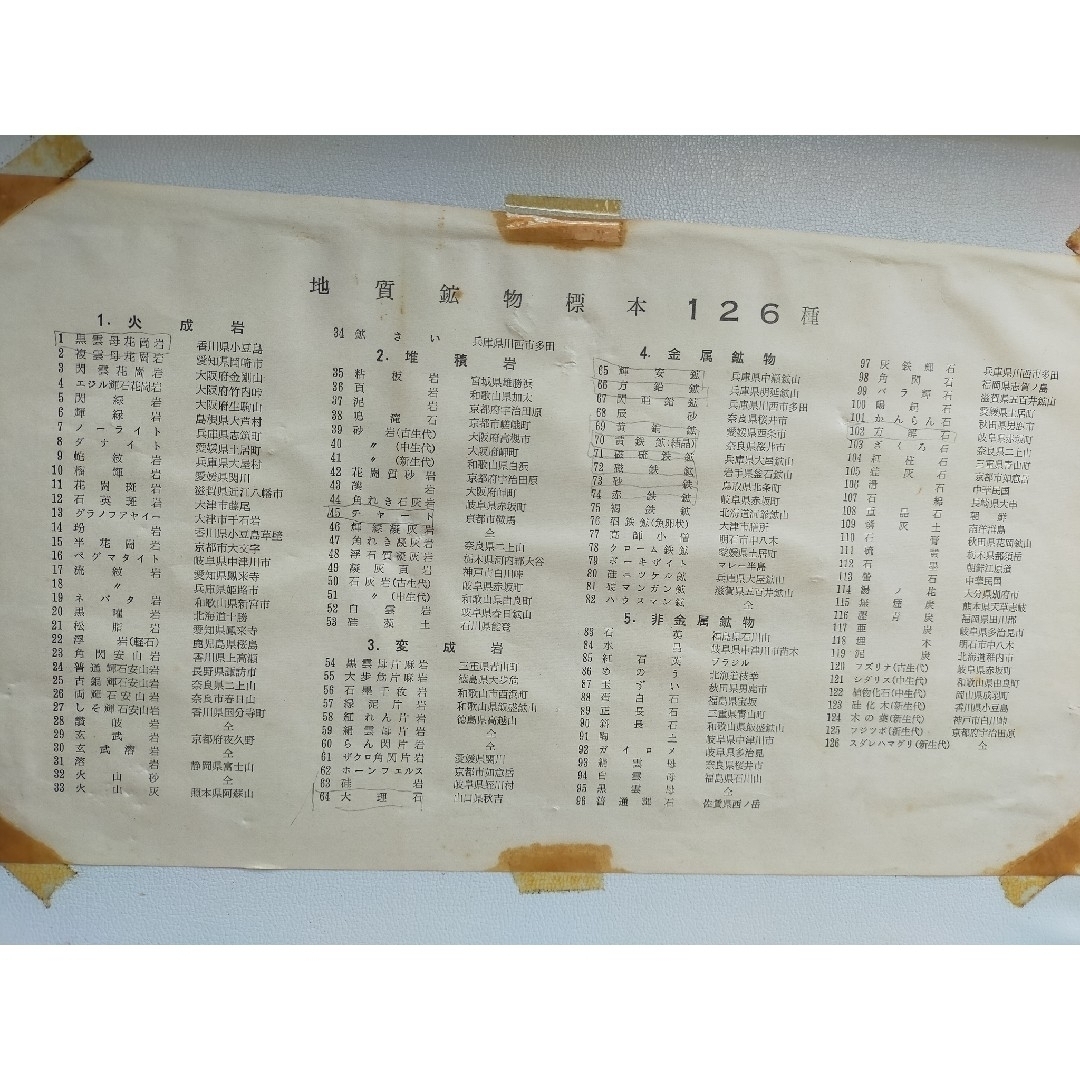 地質鉱物標本 126種
1. 火成岩
1 黒雲母花崗岩 香川県小豆島
2 複雲母花崗岩 愛知県岡崎市
3 閃雲花崗岩 大阪府金剛山
4 エジル輝石花崗岩 大阪府竹内峠
5 閃緑岩 大阪府生駒山
6 輝緑岩 島根県大芦村
7 ノーライト 兵庫県志筑町
8 ダナイト 愛媛県土居町
9 蛇紋岩 兵庫県大屋村
10 榴輝岩 愛媛県関川
11 花閃斑岩 滋賀県近江八幡市
12 石英斑岩 大津市藤尾
13 グラノファヤイー 大津市千石岩
14 玢岩 香川県小豆島草壁
15 半花崗岩 京都市大文字
16 ペグマタイト 岐阜県中津川市
17 流紋岩 愛知県鳳来寺
18 〃 兵庫県姫路市
19 ネバダ岩 和歌山県新宮市
20 黒曜岩 北海道十勝
21 松脂岩 愛知県鳳来寺
22 浮岩(軽石) 鹿児島県桜島
23 角閃安山岩 香川県上高瀬
24 普通輝石安山岩 長野県諏訪市
25 古銅輝石安山岩 奈良県二上山
26 両輝石安山岩 奈良市春日山
27 しそ輝石安山岩 香川県国分寺町
28 讃岐岩 仝
29 玄武岩 京都府夜久野
30 玄武溶岩 仝
31 溶岩 静岡県富士山
32 火山砂 仝
33 火山灰 熊本県阿蘇山
34 鉱さい 兵庫県川西市多田
2. 堆積岩
35 粘板岩 宮城県雄勝浜
36 頁岩 和歌山県加太
37 泥岩 京都府宇治田原
38 鳴滝石 京都市嵯峨町
39 砂岩(古生代) 大阪府高槻市
40 〃(中生代) 大阪府岬町
41 〃(新生代) 和歌山県白浜
42 花閃質砂岩 京都府宇治田原
43 礫岩 大阪府岬町
44 角れき石灰岩 岐阜県赤坂町
45 チャート 京都市鞍馬
46 輝緑凝灰岩 仝
47 角れき凝灰岩 奈良県二上山
48 浮石質凝灰岩 栃木県河内郡大谷
49 凝灰頁岩 神戸市白川峠
50 石灰岩(古生代) 岐阜県赤坂町
51 〃(中生代) 和歌山県由良町
52 白雲岩 岐阜県春日鉱山
53 硅藻土 石川県能登
3. 変成岩
54 黒雲母片麻岩 三重県青山町
55 大歩危片麻岩 徳島県大歩危
56 石墨千枚岩 和歌山市西浜町
57 緑泥片岩 和歌山県飯盛鉱山
58 紅れん片岩 徳島県高越山
59 絹雲母片岩 仝
60 らん閃片岩 仝
61 ザクロ角閃片岩 愛媛県関川
62 ホーンフェルス 京都市如意岳
63 硅岩 岐阜県蛭川村
64 大理石 山口県秋吉
4. 金属鉱物
65 輝安鉱 兵庫県中瀬鉱山
66 方鉛鉱 兵庫県明延鉱山
67 閃亜鉛鉱 兵庫県川西市多田
68 辰砂 奈良県桜井市
69 黄銅鉱 愛媛県西条市
70 黄鉄鉱(結晶) 奈良県桜井市
71 磁硫鉄鉱 兵庫県大屋鉱山
72 磁鉄鉱 岩手県釜石鉱山
73 砂鉄 鳥取県北条町
74 赤鉄鉱 岐阜県赤坂町
75 褐鉄鉱
76 褐鉄鉱(魚卵状) 大津市膳所
77 高師小僧 明石市中八木
78 クローム鉄鉱 愛媛県土居町
79 ボーキサイト マレー半島
80 硅ニッケル鉱 兵庫県大屋鉱山
81 炭マンガン鉱 滋賀県五百井鉱山
82 ハウスマン鉱 仝
5. 非金属鉱物
83 石英 福島県石川山
84 水晶 岐阜県中津川市苗木
85 紅石英 ブラジル
86 めのう
87 玉ずい 秋田県男鹿市
88 蛋白石 福島県宝坂
89 正長石 三重県青山町
90 斜長石 和歌山県飯盛鉱山
91 陶土 岐阜県中津川市
92 ガイロメ 岐阜県多治見
93 絹雲母 奈良県桜井市
94 白雲母 福島県石川山
95 黒雲母 仝
96 普通輝石 佐賀県西ノ岳
97 灰鉄輝石 兵庫県川西市多田
98 角閃石 福岡県志賀ノ島
99 バラ輝石 滋賀県五百井鉱山
100 陽起石 愛媛県土居町
101 かんらん石
102 方解石 岐阜県赤坂町
103 ざくろ石 奈良県二上山
104 紅柱石 三重県青山町
105 菫青石 京都市如意岳
106 滑石 中華民国
107 石綿 長崎県大串
108 重晶石 朝鮮
109 燐灰土 南洋群島
110 石膏 秋田県花岡鉱山
111 硫黄 栃木県那須岳
112 石墨
113 螢石 中華民国
114 湯ノ花 大分県別府市
115 無煙炭 熊本県天草志岐
116 瀝青炭 福岡県田川郡
117 亜炭 岐阜県多治見市
118 埋木 明石市中八木
119 泥炭 北海道稚内市
120 フズリナ(古生代) 岐阜県赤坂町
121 シダリス(中生代) 和歌山県由良町
122 植物化石(中生代) 岡山県成羽町
123 硅化木(新生代) 香川県小豆島
124 木の葉(新生代) 神戸市白川峠
125 フジツボ(新生代) 京都府宇治田原
126 スダレハマグリ(新生代) 仝